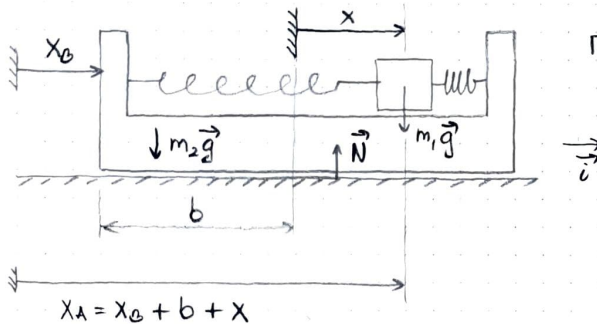 x
x_B
m₂g⃗
N⃗
m₁g⃗
i⃗
b
x_A = x_B + b + x